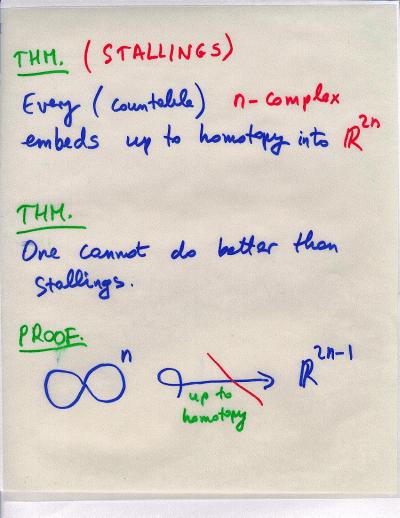 THM. (STALLINGS)
Every (countable) n-complex
embeds up to homotopy into ℝ²ⁿ
THM.
One cannot do better than
Stallings.
PROOF.
∞ⁿ ↪ ℝ²ⁿ⁻¹
up to
homotopy